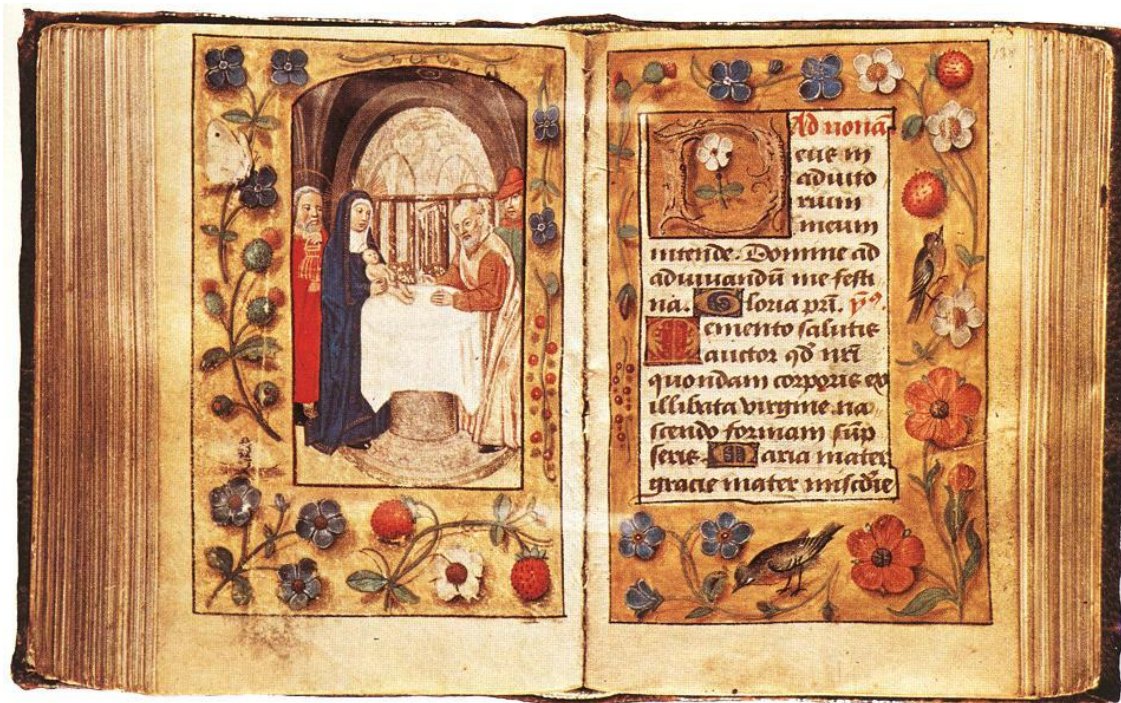 Ad nonā
eus in
adiuto
rium
meum
intende. Domine ad
adiuuandū me festi
na. Gloria pr̄i. ÿ⁹.
Memento salutis
auctor qd̄ nr̄i
quondam corporis ex
illibata virgine na
scendo formam sūp
seris. Maria mater
gracie mater miscd̄ie